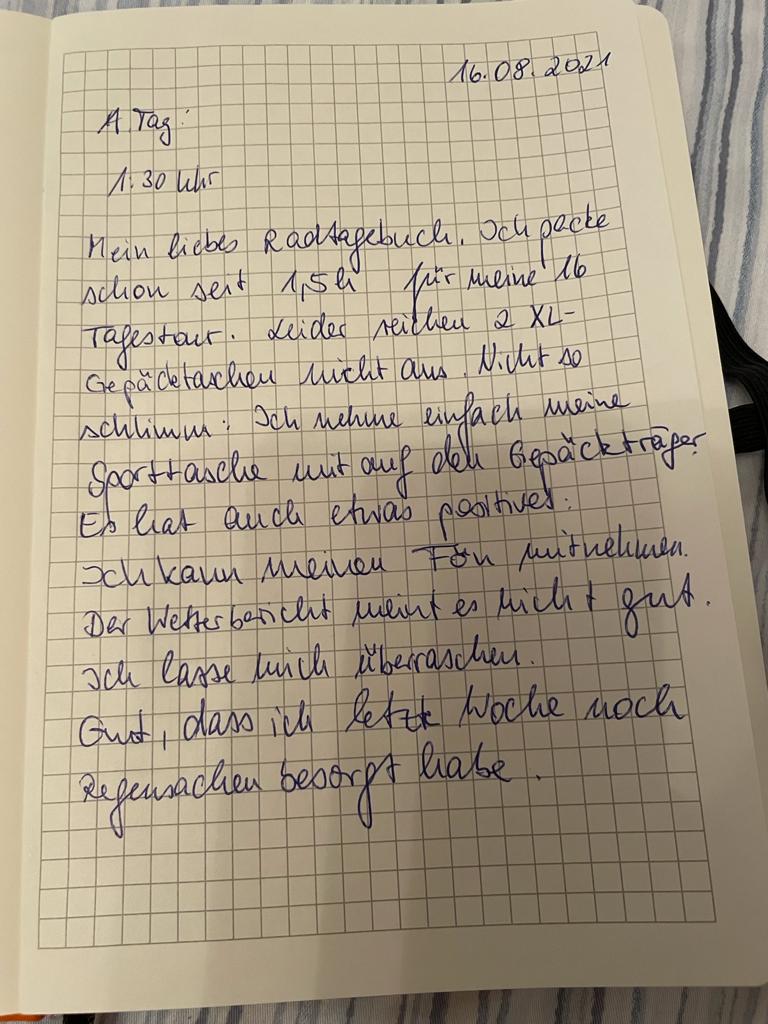 16.08.2021
1. Tag:
1:30 Uhr
Mein liebes Radtagebuch. Ich packe
schon seit 1,5h für meine 16
Tagestour. Leider reichen 2 XL-
Gepäcktaschen nicht aus. Nicht so
schlimm: Ich nehme einfach meine
Sporttasche mit auf den Gepäckträger.
Es hat auch etwas positives:
Ich kann meinen Fön mitnehmen.
Der Wetterbericht meint es nicht gut.
Ich lasse mich überraschen.
Gut, dass ich letzte Woche noch
Regensachen besorgt habe.